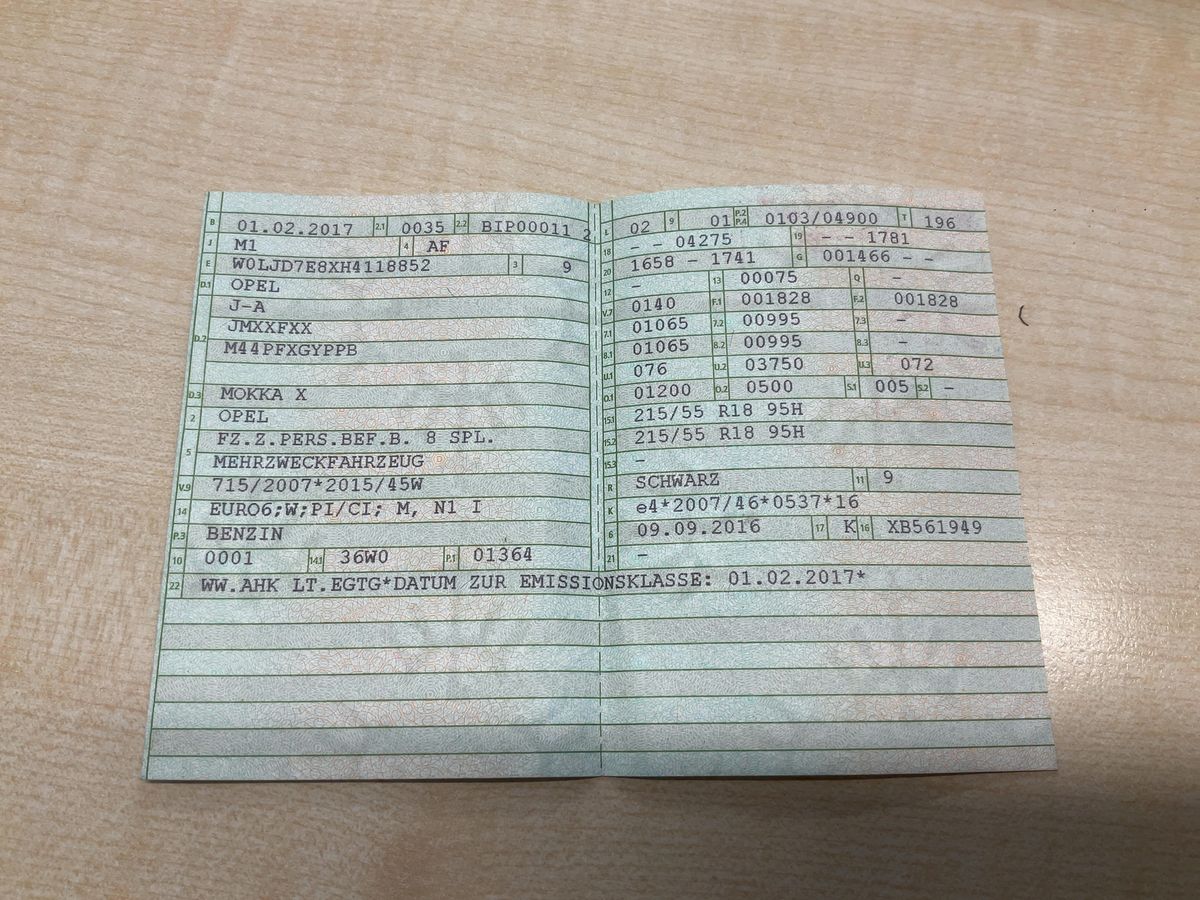 B 01.02.2017 2.1 0035 2.2 BIP00011 2
J M1 4 AF
E W0LJD7E8XH4118852 3 9
D.1 OPEL
J-A
D.2 JMXXFXX
M44PFXGYPPB
D.3 MOKKA X
2 OPEL
5 FZ.Z.PERS.BEF.B. 8 SPL.
MEHRZWECKFAHRZEUG
V.9 715/2007*2015/45W
14 EURO6;W;PI/CI; M, N1 I
P.3 BENZIN
10 0001 14.1 36W0 P.1 01364
L 02 9 01 P.2 P.4 0103/04900 T 196
18 - - 04275 19 - - 1781
20 1658 - 1741 G 001466 - -
12 - 13 00075 Q -
V.7 0140 F.1 001828 F.2 001828
7.1 01065 7.2 00995 7.3 -
8.1 01065 8.2 00995 8.3 -
U.1 076 U.2 03750 U.3 072
O.1 01200 O.2 0500 S.1 005 S.2 -
15.1 215/55 R18 95H
15.2 215/55 R18 95H
15.3 -
R SCHWARZ 11 9
K e4*2007/46*0537*16
6 09.09.2016 17 K 16 XB561949
21 -
22 WW.AHK LT.EGTG*DATUM ZUR EMISSIONSKLASSE: 01.02.2017*